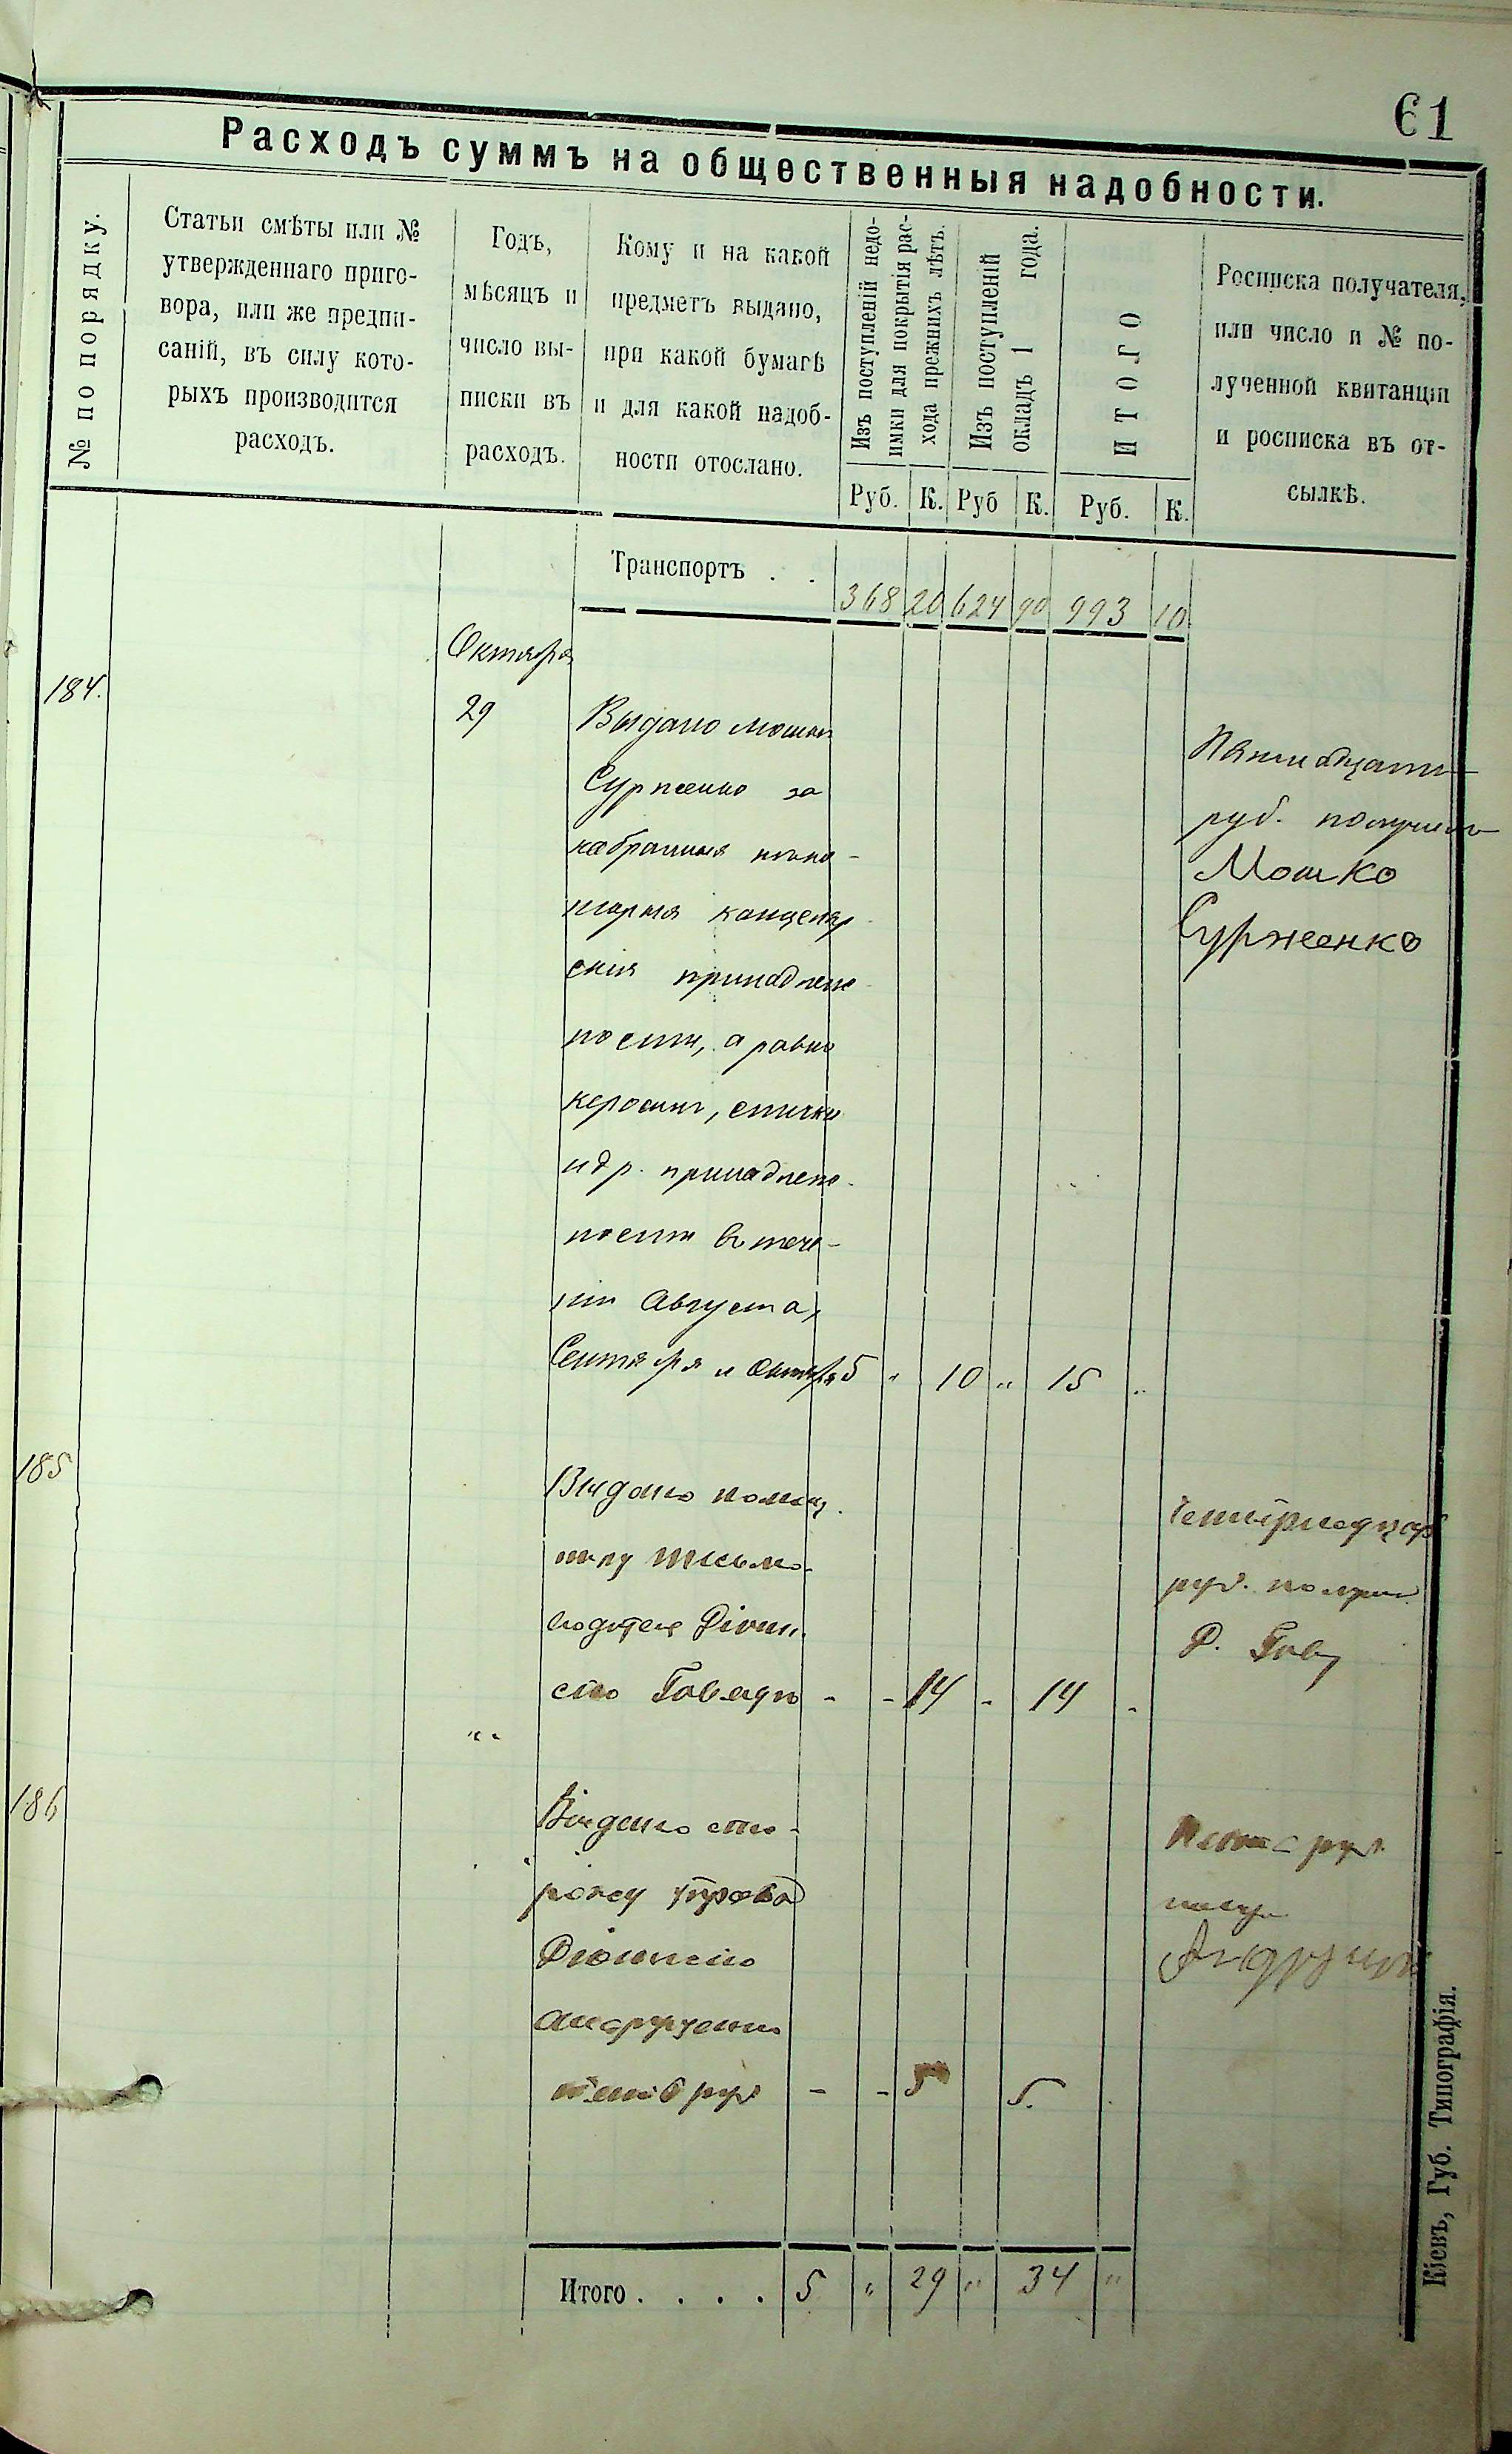 61
Расходъ суммъ на общественныя надобности.
№ по порядку.
Статьи смѣты или №
утвержденнаго приго-
вора, или же предпи-
саній, въ силу кото-
рыхъ производится
расходъ.
Годъ,
мѣсяцъ и
число вы-
писки въ
расходъ.
Кому и на какой
предметъ выдано,
при какой бумагѣ
и для какой надоб-
ности отослано.
Изъ поступленій недо-
имки для покрытія рас-
хода прежнихъ лѣтъ.
Изъ поступленій
окладъ 1 года.
ИТОГО
Росписка получателя,
или число и № по-
лученной квитанціи
и росписка въ от-
сылкѣ.
Руб. К. Руб К. Руб. К.
Транспортъ . . 368 20 624 90 993 10
Октября
184. 29 Выдано
Сурженко за
набранныя
канцеляр
скія принадлеж
ности, а равно
керосинъ, спички
и др. принадлеж-
ности въ тече-
ніи Августа,
Сентября и Октября 5 " 10 " 15 "
Пятнадцать
руб. получилъ
Мошко
Сурженко
185 Выдано помощ
нику письмо-
водителя Діони
сію - - 14 - 14 -
Четырнадцать
руб. получил
Р.
" "
186 Выдано сто-
рожу
Діонисію
руб - - 5 5.
руб.
Итого . . . . 5 " 29 " 34 "
Кіевъ, Губ. Типографія.